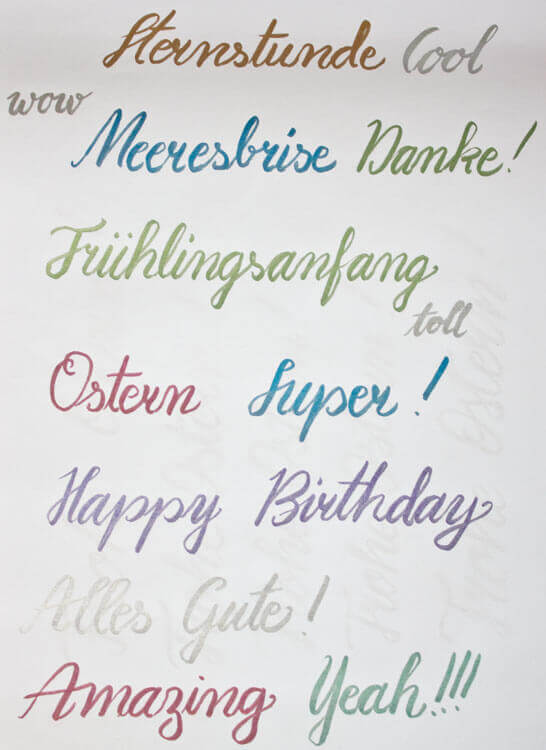 Sternstunde Cool
wow
Meeresbrise Danke!
Frühlingsanfang
toll
Ostern Super!
Happy Birthday
Alles Gute!
Amazing Yeah!!!